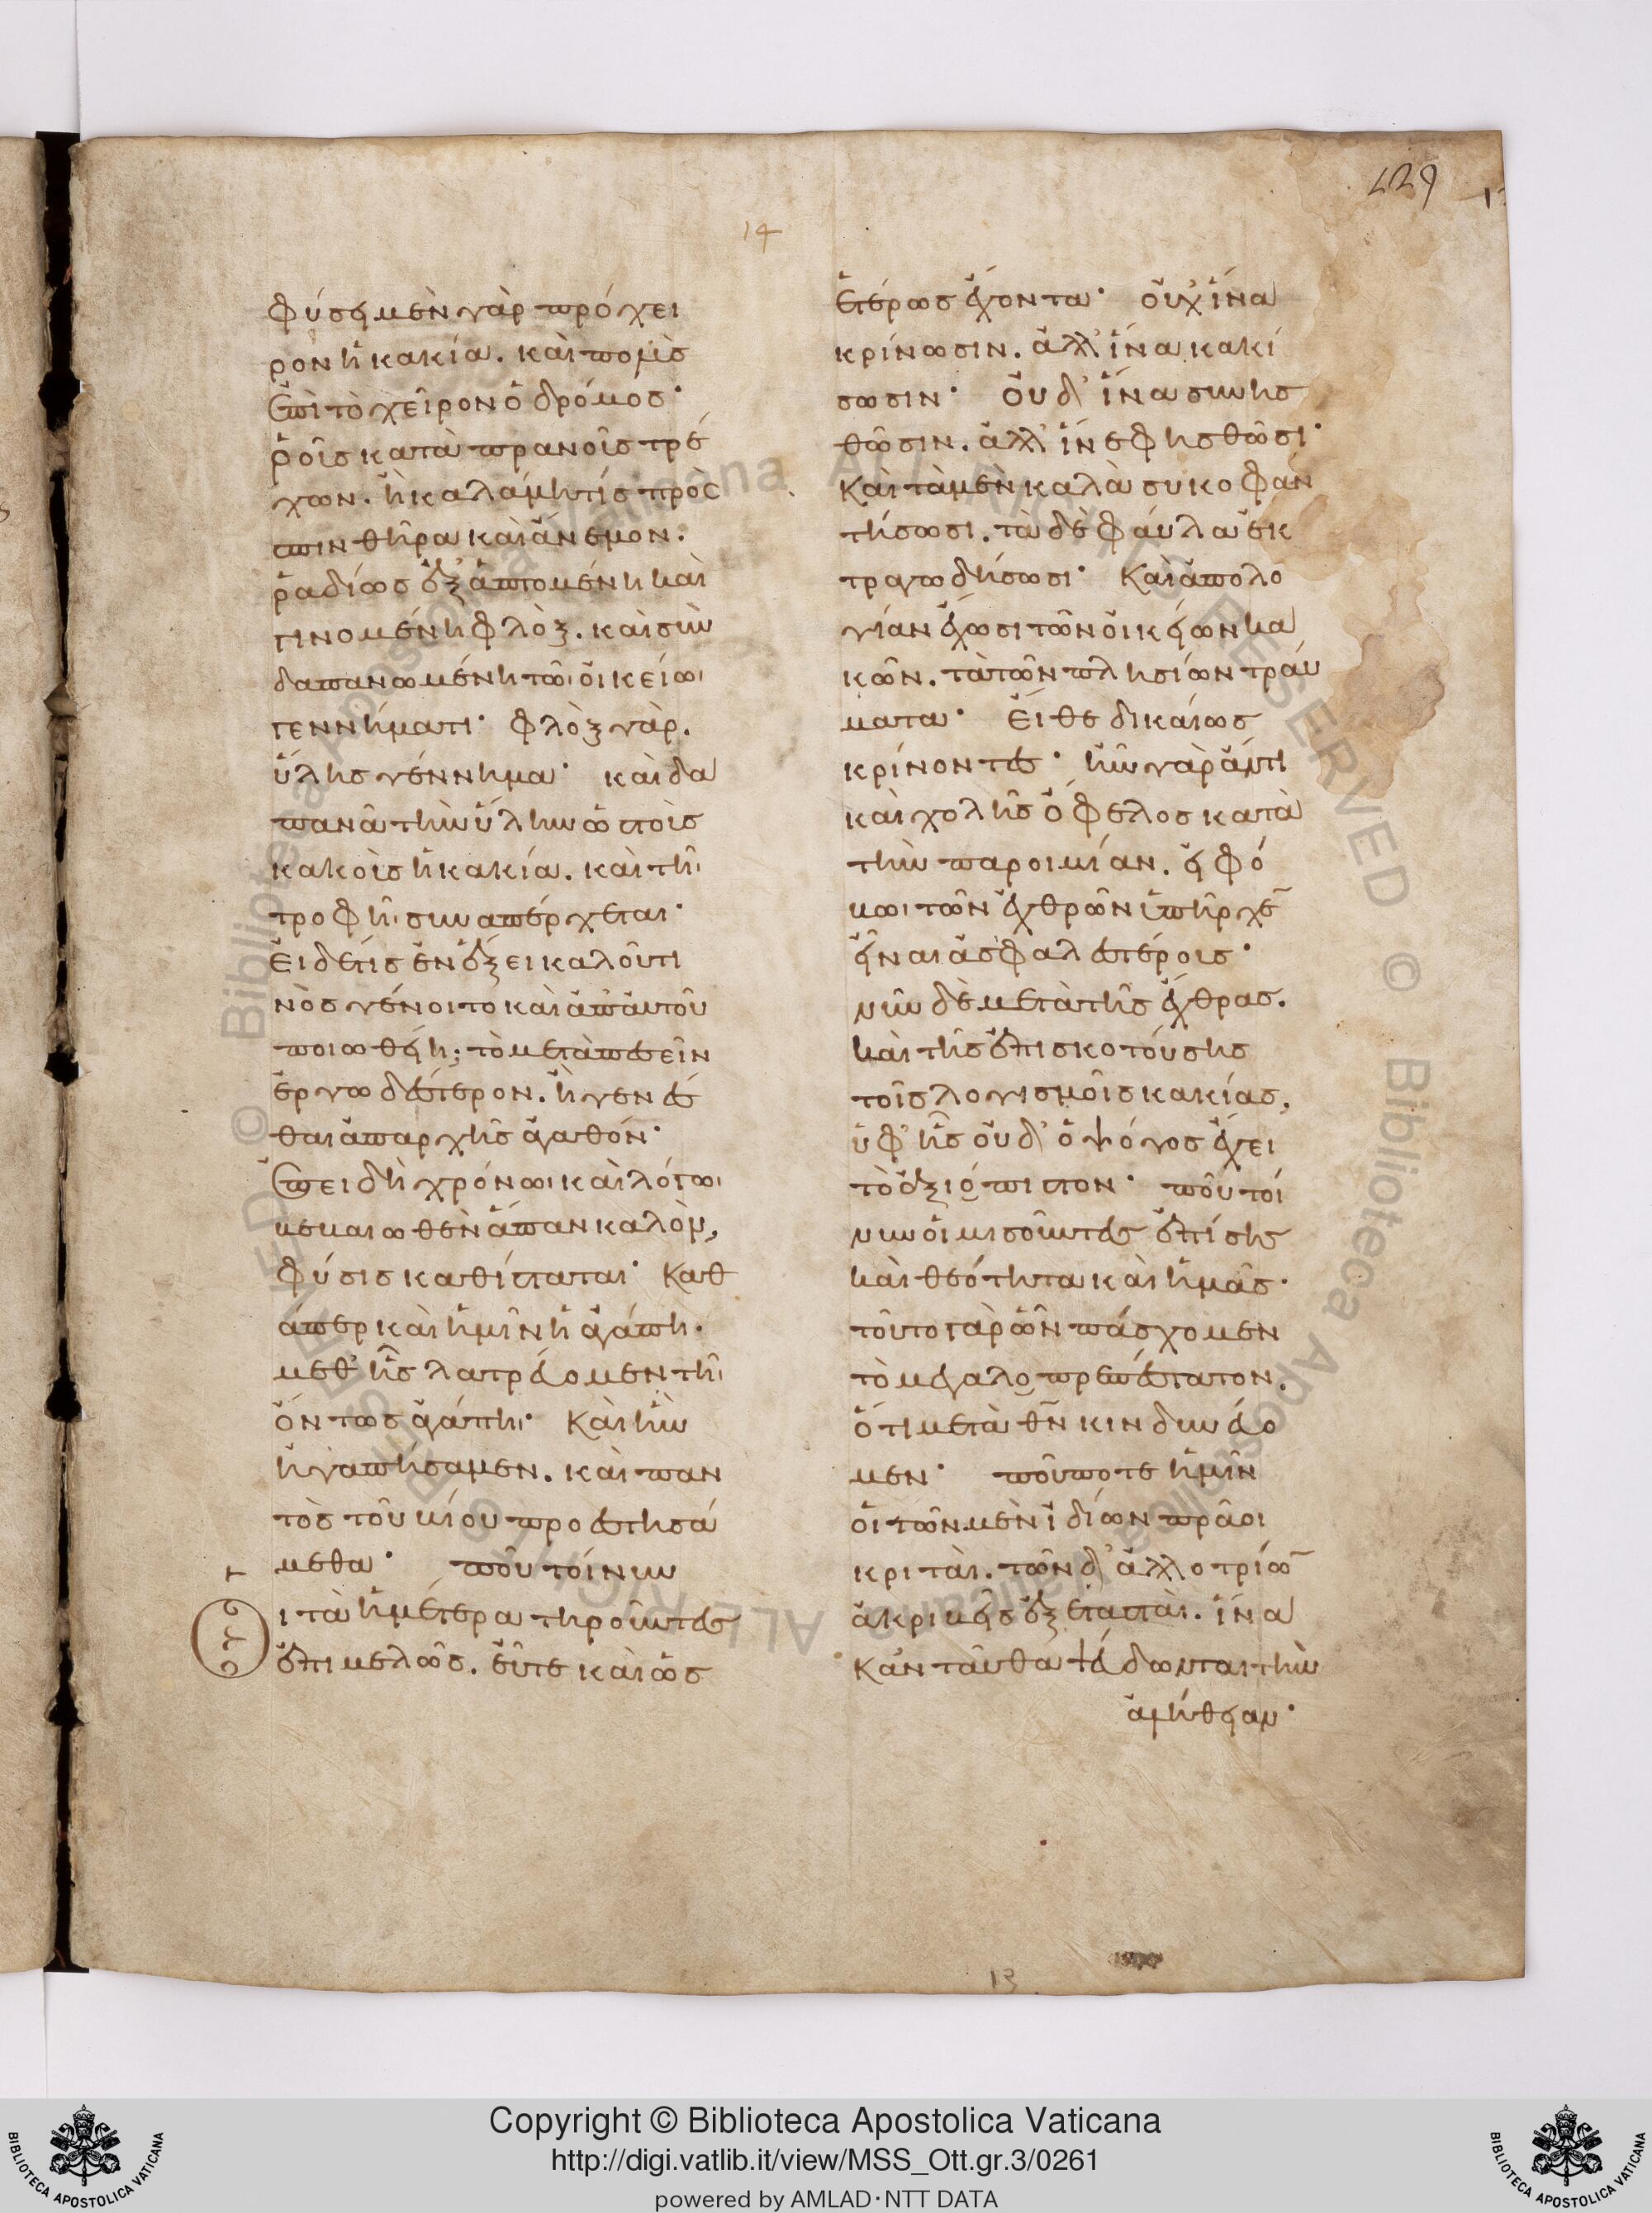 429
14
φύσει μὲν γὰρ πρόχει
ρον ἡ κακία. καὶ πολὺς
ἐπὶ τὸ χεῖρον ὁ δρόμος·
ῥοῦς κατὰ πρανοῦς τρέ
χων. ἢ καλάμη τίς πρὸς
σπινθῆρα καὶ ἄνεμον.
ῥαδίως ἐξαπτομένη καὶ
γινομένη φλὸξ. καὶ συν
δαπανωμένη τῶι οἰκείωι
γεννήματι· φλὸξ γὰρ.
ὕλης γέννημα· καὶ δα
πανᾶ τὴν ὕλην ὡς τοὺς
κακοὺς ἡ κακία. καὶ τῆι
τροφῆι συναπέρχεται·
εἰ δέ τις ἐν ἕξει καλοῦ τι
νὸς γένοιτο καὶ ἀπ' αὐτοῦ
ποιωθείη; τὸ μεταπεσεῖν
ἐργωδέστερον. ἢ γενέσ
θαι ἀπαρχῆς ἀγαθόν·
ἐπειδὴ χρόνωι καὶ λόγωι
βεβαιωθὲν ἅπαν καλὸν,
φύσις καθίσταται· καθ
άπερ καὶ ἡμῖν ἡ ἀγάπη.
μεθ' ἧς λατρεύομεν τῆι
ὄντως ἀγάπηι· καὶ ἣν
ἠγαπήσαμεν. καὶ παν
τὸς τοῦ βίου προεστησά
μεθα· ποῦ τοίνυν
ο
ι τὰ ἡμέτερα τηροῦντες
ἐπιμελῶς. εὖ τε καὶ ὡς
ἑτέρως ἔχοντα· οὐχ ἵνα
κρίνωσιν. ἀλλ' ἵνα κακί
σωσιν· οὐδ' ἵνα συνησ
θῶσιν. ἀλλ' ἵν ἐφησθῶσι·
καὶ τὰ μὲν καλὰ συκοφαν
τήσωσι. τὰ δὲ φαύλα ἐκ
τραγωδήσωσι· καὶ ἀπολο
γίαν ἔχωσι τῶν οἰκείων κα
κῶν. τὰ τῶν πλησίων τραύ
ματα· εἴθε δικαίως
κρίνοντες· ἦν γὰρ ἄν τι
καὶ χολῆς ὄφελος κατὰ
τὴν παροιμίαν. εἰ φό
βωι τῶν ἐχθρῶν ὑπῆρχε
εἶναι ἀσφαλεστέροις·
νῦν δὲ μετὰ τῆς ἔχθρας.
καὶ τῆς ἐπισκοτούσης
τοῖς λογισμοῖς κακίας,
ὑφ' ἧς οὐδ' ὁ ψόγος ἔχει
τὸ ἀξιόπιστον· ποῦ τοί
νυν οἱ μισοῦντες ἐπίσης
καὶ θεότητα καὶ ἡμᾶς·
τοῦτο γὰρ ὧν πάσχομεν
τὸ μεγαλοπρεπέστατον.
ὅτι μετὰ θῦ κινδυνεύο
μεν· ποῦ ποτε ἡμῖν
οἱ τῶν μὲν ἰδίων πρᾶοι
κριταὶ. τῶν δ' ἀλλοτρίων
ἀκριβεῖς ἐξετασταὶ. ἵνα
κἀνταῦθα ψεύδωνται τὴν
ἀλήθειαν·
13
Copyright © Biblioteca Apostolica Vaticana
http://digi.vatlib.it/view/MSS_Ott.gr.3/0261
powered by AMLAD·NTT DATA